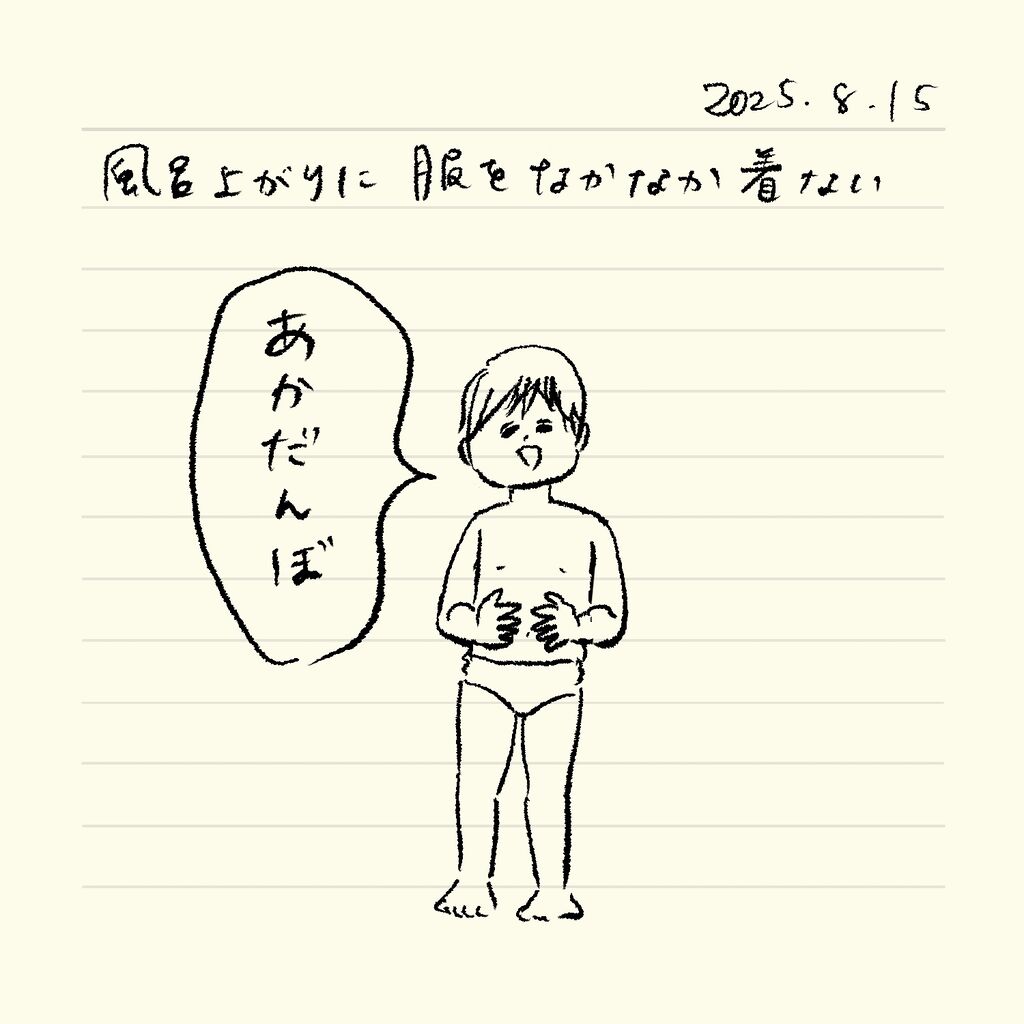 2025.8.15
風呂上がりに 服をなかなか着ない
あかだんぼ